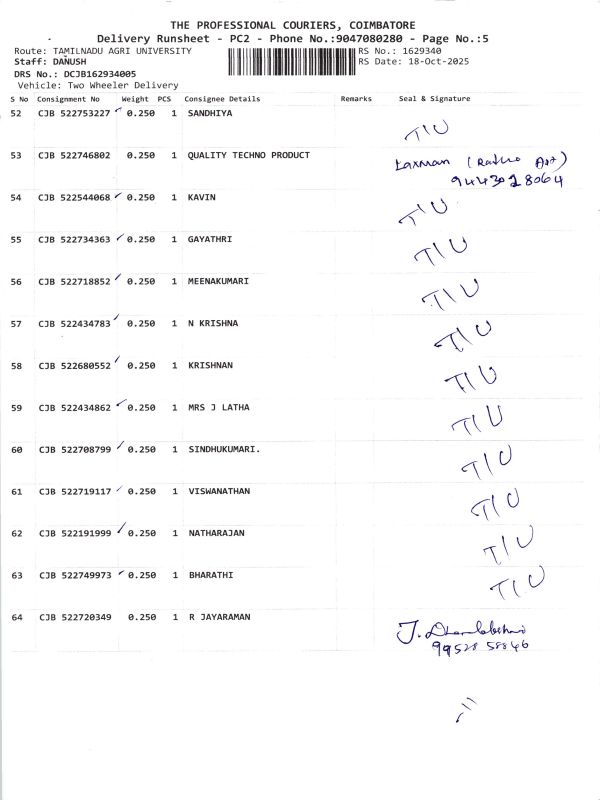 THE PROFESSIONAL COURIERS, COIMBATORE
Delivery Runsheet - PC2 - Phone No.:9047080280 - Page No.:5
Route: TAMILNADU AGRI UNIVERSITY RS No.: 1629340
Staff: DANUSH RS Date: 18-Oct-2025
DRS No.: DCJB162934005
Vehicle: Two Wheeler Delivery
S No Consignment No Weight PCS Consignee Details Remarks Seal & Signature
52 CJB 522753227 0.250 1 SANDHIYA T/U
53 CJB 522746802 0.250 1 QUALITY TECHNO PRODUCT Laxman
9443028064
54 CJB 522544068 0.250 1 KAVIN T/U
55 CJB 522734363 0.250 1 GAYATHRI T/U
56 CJB 522718852 0.250 1 MEENAKUMARI T/U
57 CJB 522434783 0.250 1 N KRISHNA T/U
58 CJB 522680552 0.250 1 KRISHNAN T/U
59 CJB 522434862 0.250 1 MRS J LATHA T/U
60 CJB 522708799 0.250 1 SINDHUKUMARI. T/U
61 CJB 522719117 0.250 1 VISWANATHAN T/U
62 CJB 522191999 0.250 1 NATHARAJAN T/U
63 CJB 522749973 0.250 1 BHARATHI T/U
64 CJB 522720349 0.250 1 R JAYARAMAN J.
99528 58846